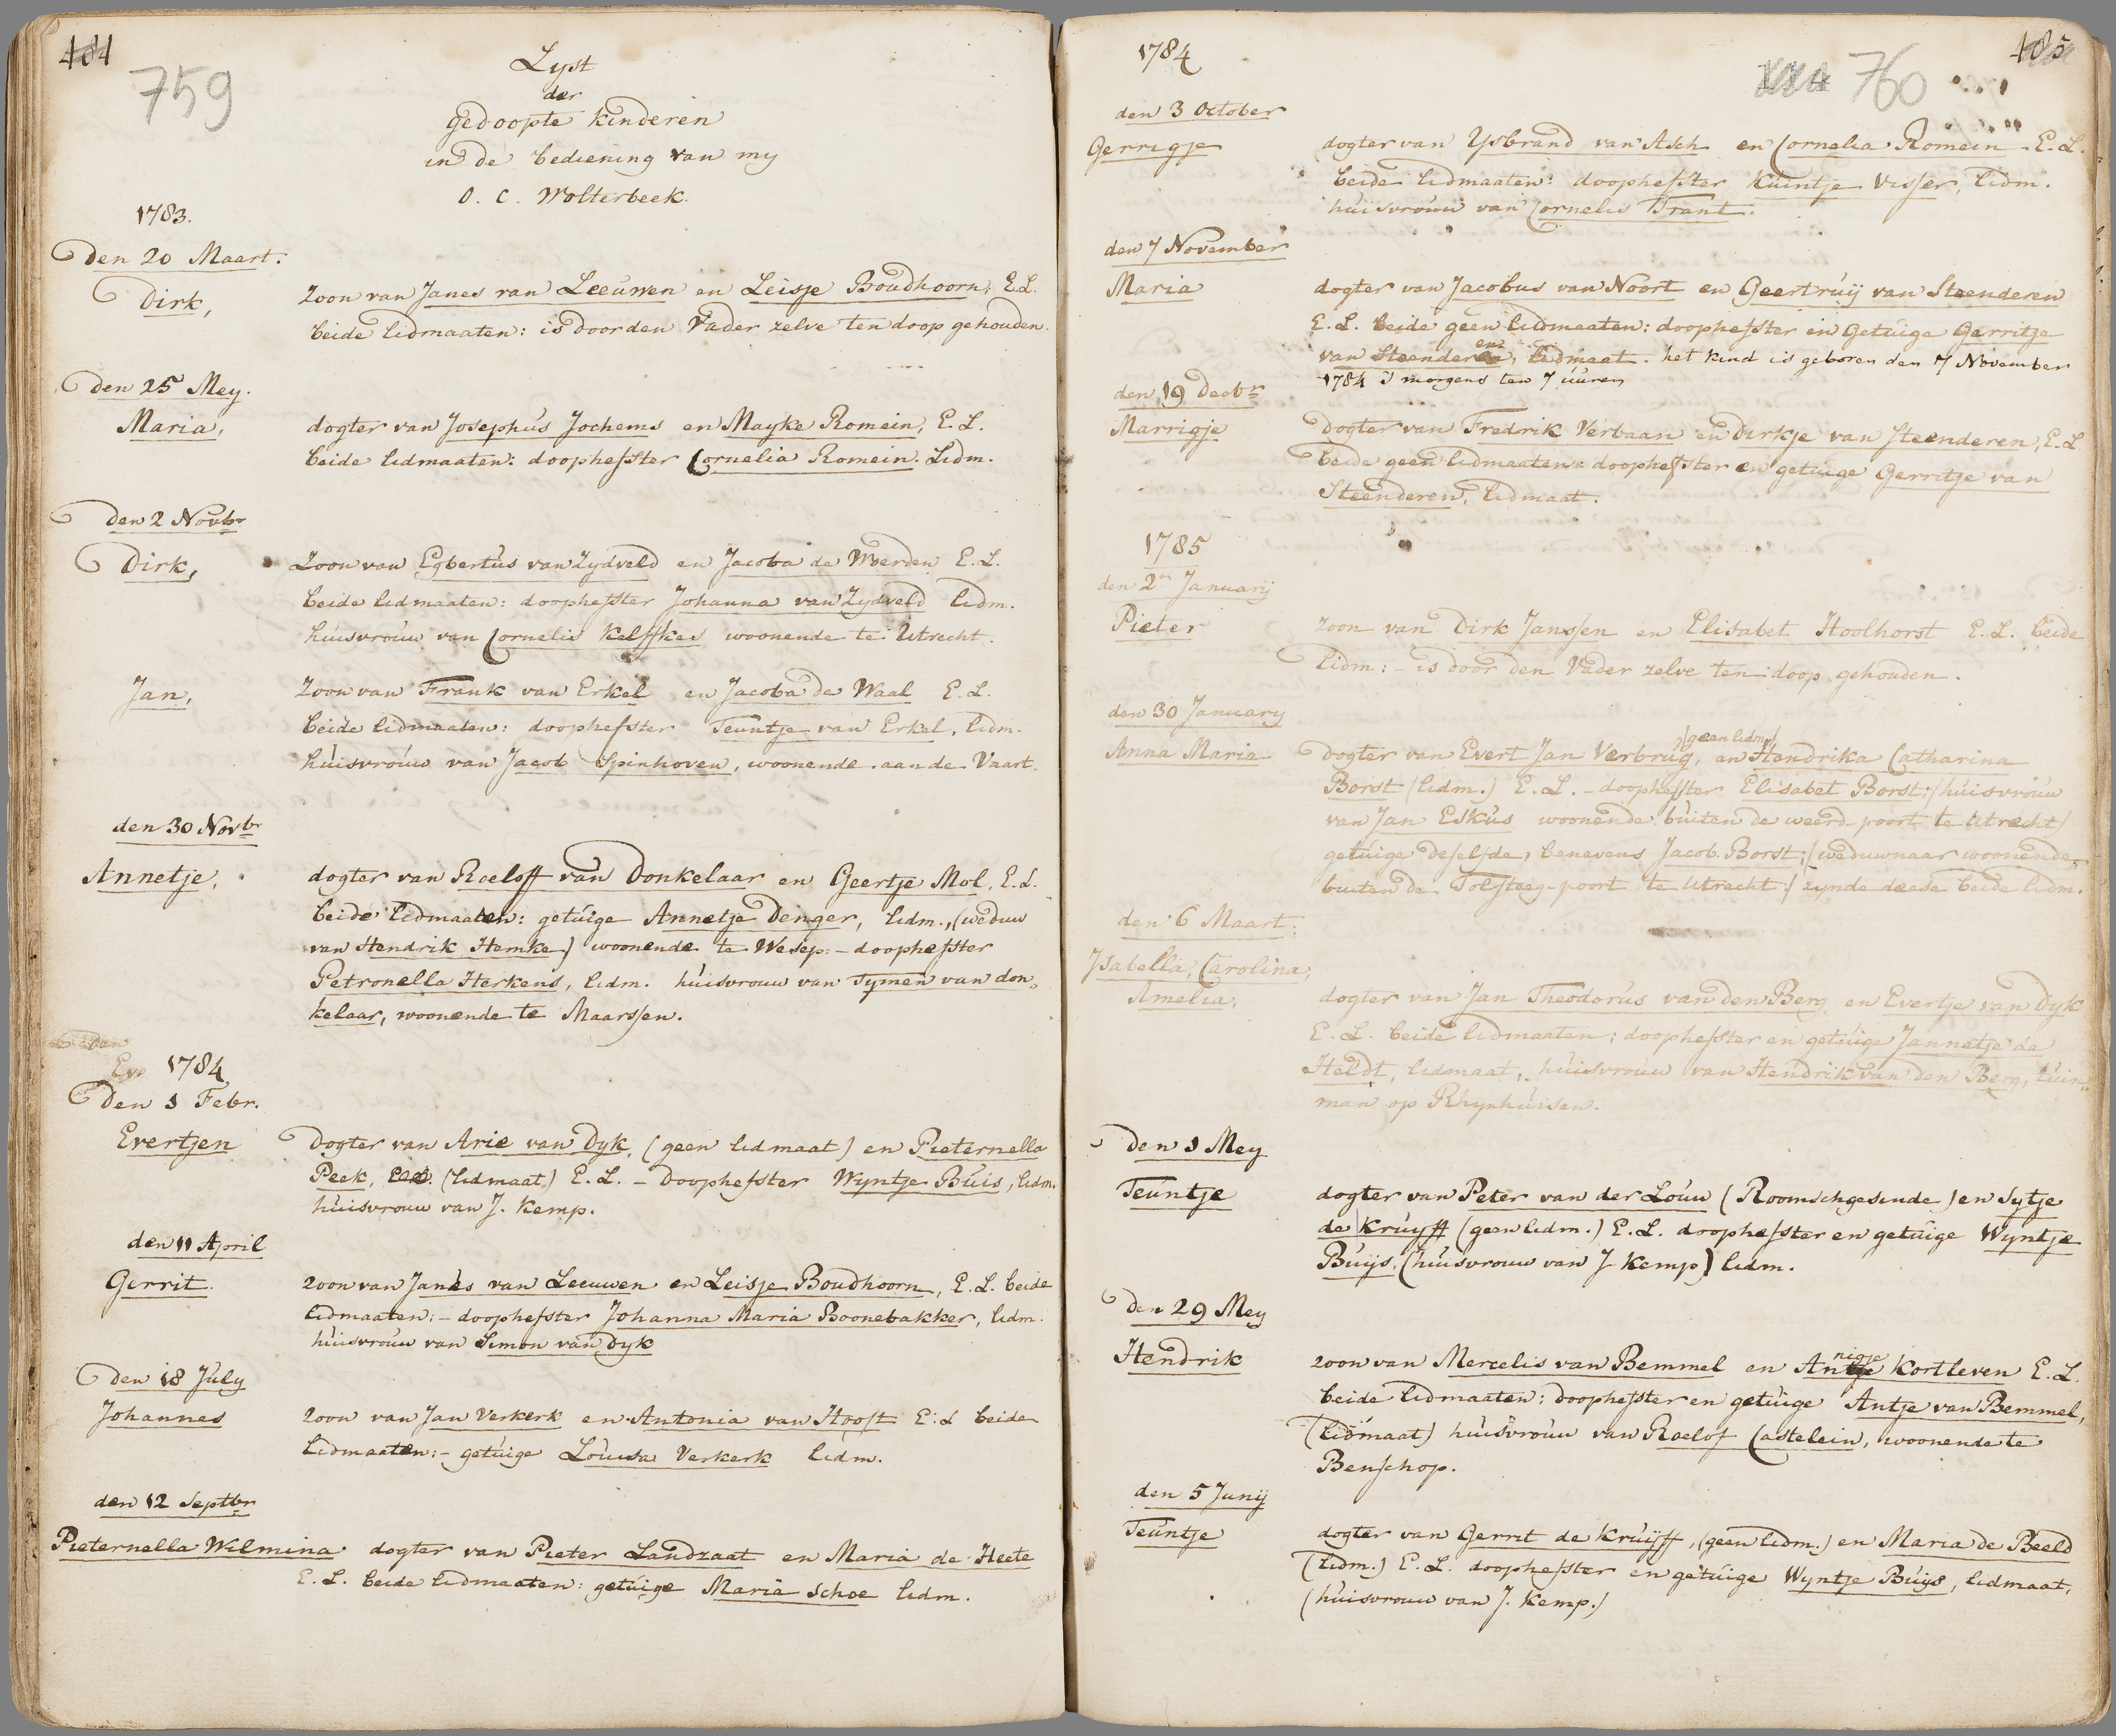 484
759
Lyst
der
gedoopte kinderen
in de bediening van my
O. C. Wolterbeek.
1783.
Den 20 Maart.
Dirk,
zoon van Janes van Leeuwen en Leisje Boudhoorn, E.L.
beide lidmaaten: is door den Vader zelve ten doop gehouden.
Den 25 Mey.
Maria,
dogter van Josephus Jochems en Mayke Romein, E. L.
beide lidmaaten: doophefster Cornelia Romein. Lidm.
Den 2 Novbr
Dirk,
Zoon van Egbertus van Zydveld en Jacoba de Woerden E. L.
beide lidmaaten: doophefster Johanna van Zydveld lidm.
huisvrouw van Cornelis Kelffkes woonende te Utrecht.
Jan,
Zoon van Frank van Erkel en Jacoba de Waal E. L.
beide lidmaaten: doophefster Teuntje van Erkel, lidm.
huisvrouw van Jacob Spinhoven, woonende aan de Vaart.
den 30 Novbr
Annetje,
dogter van Roeloff van Donkelaar en Geertje Mol, E. L.
beide lidmaaten: getuige Annetje Denger, lidm., (weduw
van Hendrik Hemke) woonende te Wesep: – doophefster
Petronella Herkens, lidm. huisvrouw van Tymen van don„
kelaar, woonende te Maarssen.
1784
Den 1 Febr.
Evertjen
Dogter van Arie van Dyk, (geen lidmaat) en Pieternella
Peek, (lidmaat.) E. L. – Doophefster Wyntje Buis, lidm.
huisvrouw van J. Kemp.
den 11 April
Gerrit.
zoon van Janes van Leeuwen en Leisje Boudhoorn, E. L. beide
lidmaaten: – doophefster Johanna Maria Boonebakker, lidm.
huisvrouw van Simon van Dyk
Den 18 July
Johannes
zoon van Jan Verkerk en Antonia van Hooft E: L beide
lidmaaten: – getuige Louwsa Verkerk lidm.
den 12 Septbr
Pieternella Wilmina dogter van Pieter Landzaat en Maria de Heete
E. L. beide lidmaaten: getuige Maria Schoe lidm.
1784
760
485
den 3 October
Gerrigje
dogter van Ysbrand van Asch en Cornelia Romein E. L.
beide lidmaaten: doophefster Kuintje Visser, lidm.
huisvrouw van Cornelis Trant.
den 7 November
Maria
dogter van Jacobus van Noort en Geertruij van Steenderen
E. L. beide geen lidmaaten: doophefster en Getuige Gerritje
van Steenderen, lidmaat. het kind is geboren den 7 November
1784 's morgens ten 7 uuren
den 19 Decbr
Marrigje
Dogter van Fredrik Verbaan en Dirkje van Steenderen, E. L
Beide geen lidmaaten: doophefster en getuige Gerritje van
Steenderen, lidmaat.
1785
den 2n Januarij
Pieter
zoon van Dirk Janssen en Elisabet Hoolhorst E. L. beide
Lidm: – is door den Vader zelve ten doop gehouden.
den 30 January
Anna Maria
(geen lidm.)
Dogter van Evert Jan Verbrug, en Hendrika Catharina
Borst (lidm.) E. L. – doophefster Elisabet Borst: (huisvrouw
van Jan Eskus woonende buiten de weerd-poort te Utrecht)
getuige deselfde, benevens Jacob Borst; (weduwnaar woonende
buiten de Tolsteeg-poort te Utrecht:) zynde deese beide lidm.
den 6 Maart.
Isabella, Carolina,
Amelia,
dogter van Jan Theodorus van den Berg en Evertje van Dyk
E. L. beide lidmaaten: doophefster en getuige Jannetje de
Heldt, lidmaat, huisvrouw van Hendrik van den Berg, tuin„
man op Rhynhuisen.
Den 1 Mey
Teuntje
dogter van Peter van der Louw (Roomschgesinde) en Sytje
de Kruyff (geen lidm.) E. L. doophefster en getuige Wyntje
Buijs. (huisvrouw van J. Kemp) lidm.
Den 29 Mey
Hendrik
nigje
zoon van Mercelis van Bemmel en Antje Kortleven E. L.
beide lidmaaten: doophefster en getuige Antje van Bemmel,
(lidmaat) huisvrouw van Roelof Castelein, woonende te
Benschop.
den 5 Junij
Teuntje
dogter van Gerrit de Kruijff, (geen lidm.) en Maria de Beeld
(lidm.) E. L. doophefster en getuige Wyntje Buijs, lidmaat,
(huisvrouw van J. Kemp.)